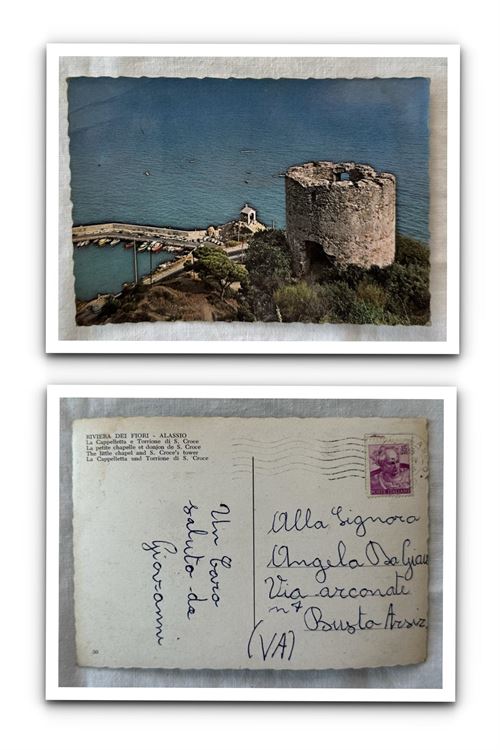 RIVIERA DEI FIORI - ALASSIO
La Cappelletta e Torrione di S. Croce
La petite chapelle et donjon de S. Croce
The little chapel and S. Croce's tower
La Cappelletta und Torrione di S. Croce
Un Caro
saluto da
Giovanni
Alla Signora
Angela
Via arconate
n° 7 Busto Arsiz
(VA)
POSTE ITALIANE
30